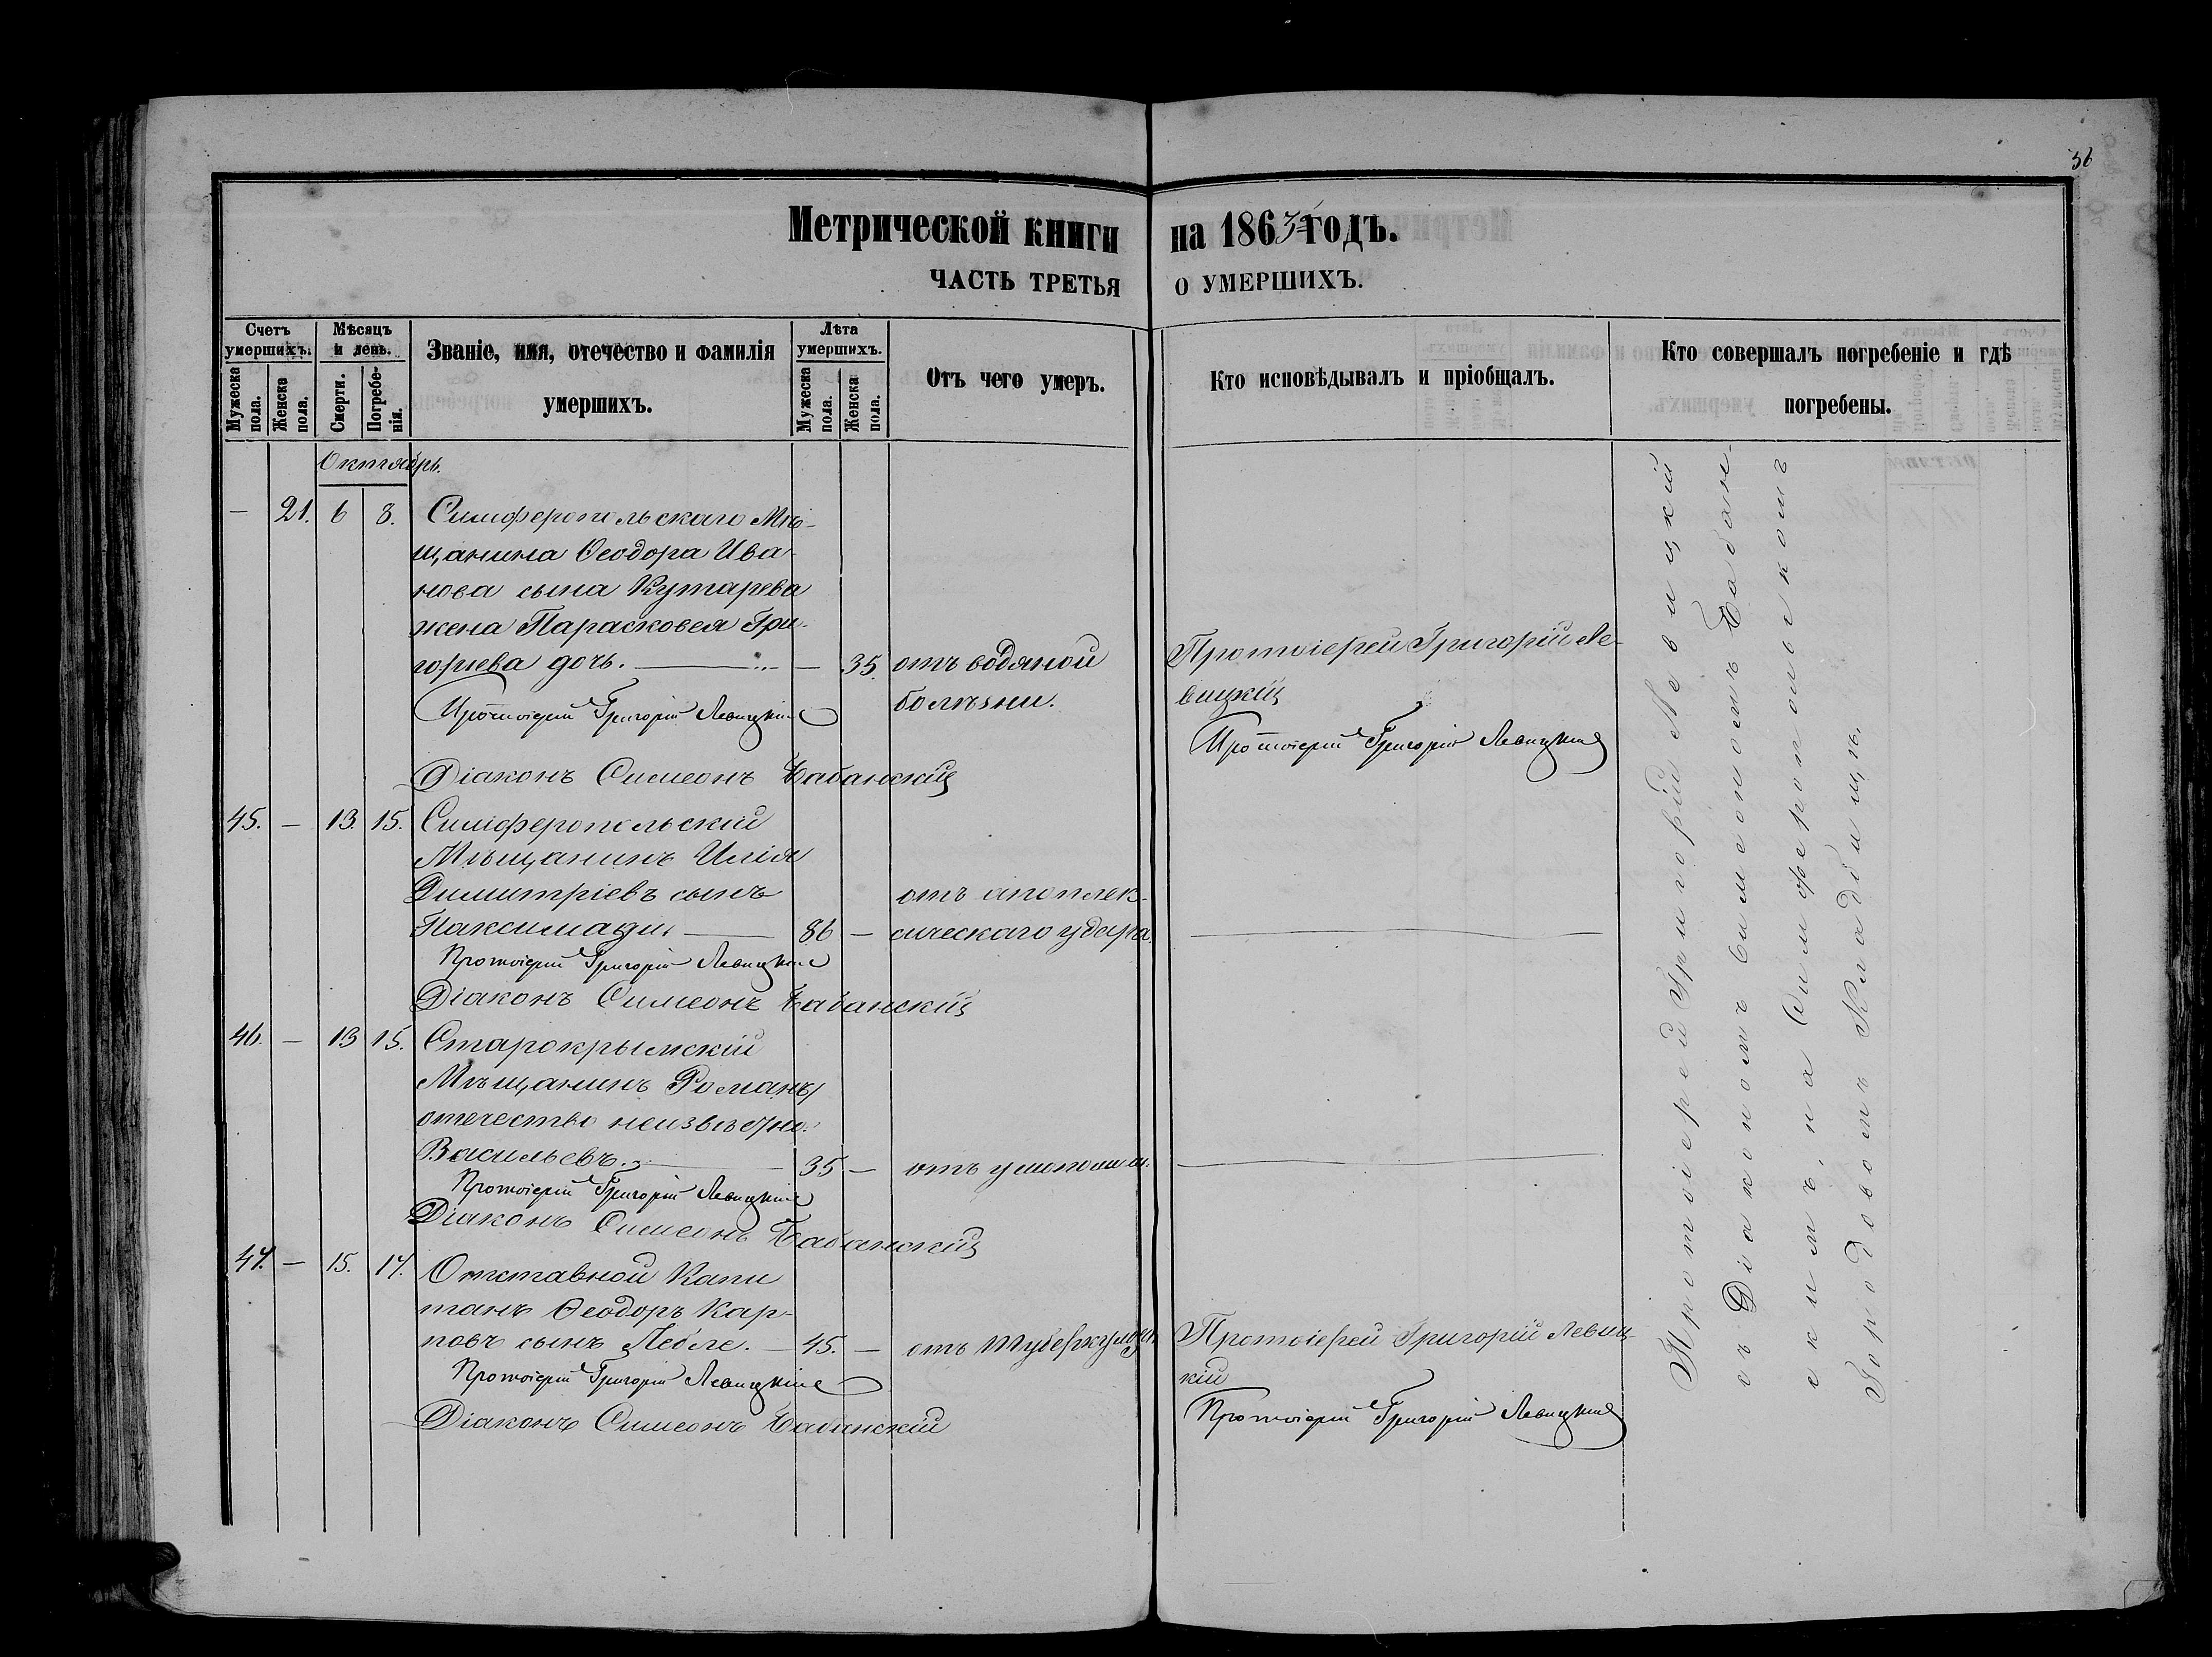 36
Метрической книги на 1863 годъ.
ЧАСТЬ ТРЕТЬЯ О УМЕРШИХЪ.
Счетъ умершихъ.
Мужеска пола.
Женска пола.
Мѣсяцъ и день.
Смерти.
Погребенія.
Званіе, имя, отечество и фамилія умершихъ.
Лѣта умершихъ.
Мужеска пола.
Женска пола.
Отъ чего умеръ.
Кто исповѣдывалъ и пріобщалъ.
Кто совершалъ погребеніе и гдѣ погребены.
Октябрь.
— 21. 6 8. Симферопольскаго Мѣ-
щанина Ѳеодора Ива-
нова сына Кутарева
жена Парасковея Гри-
горьева дочь. — 35. отъ водяной
болѣзни.
Протоіерей Григорій Ле-
вицкій
Протоіерей Григорій Левицкій
Протоіерей Григорій Левицкій
Діаконъ Симеонъ Бабанскій
45. — 13. 15. Симферопольскій
Мѣщанинъ Илія
Димитріевъ сынъ
Паксимади 86 —
отъ апоплек-
сическаго удара.
Протоіерей Григорій Левицкій
Діаконъ Симеонъ Бабанскій
46. — 13 15. Старокрымскій
Мѣщанинъ Романъ
отечество неизвѣстно
Васильевъ. 35 — отъ
Протоіерей Григорій Левицкій
Діаконъ Симеонъ Бабанскій
47. — 15. 17. Отставной Капи
танъ Ѳеодоръ Кар-
повъ сынъ 45. — отъ
Протоіерей Григорій Левиц-
кій
Протоіерей Григорій Левицкій
Протоіерей Григорій Левицкій
Діаконъ Симеонъ Бабанскій
Протоіерей Григорій Левицкій
съ Діакономъ Симеономъ Бабан-
скимъ, на Симферопольскомъ
Городовомъ Кладбищѣ.